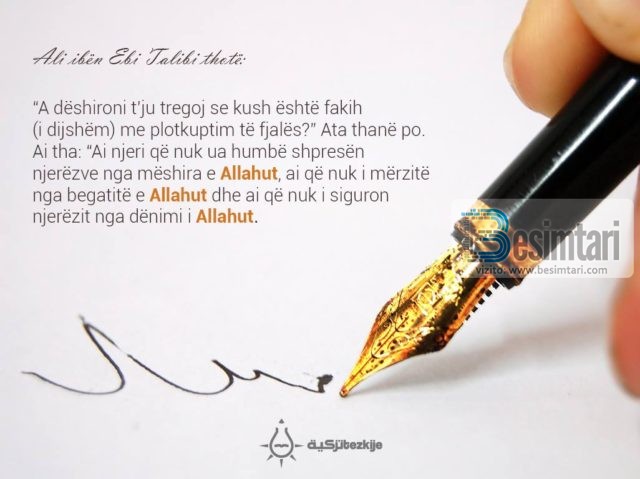 Ali ibën Ebi Talibi thotë:
“A dëshironi t’ju tregoj se kush është fakih
(i dijshëm) me plotkuptim të fjalës?” Ata thanë po.
Ai tha: “Ai njeri që nuk ua humbë shpresën
njerëzve nga mëshira e Allahut, ai që nuk i mërzitë
nga begatitë e Allahut dhe ai që nuk i siguron
njerëzit nga dënimi i Allahut.
Besimtari
vizito: www.besimtari.com
تزكية tezkije